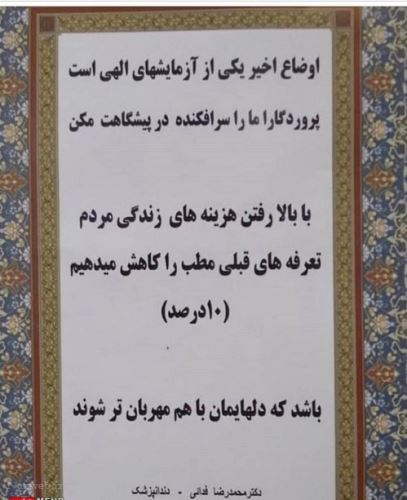 اوضاع اخیر یکی از آزمایشهای الهی است
پروردگارا ما را سرافکنده در پیشگاهت مکن
با بالا رفتن هزینه های زندگی مردم
تعرفه های قبلی مطب را کاهش میدهیم
(۱۰درصد)
باشد که دلهایمان با هم مهربان تر شوند
دکترمحمدرضا فدائی - دندانپزشک